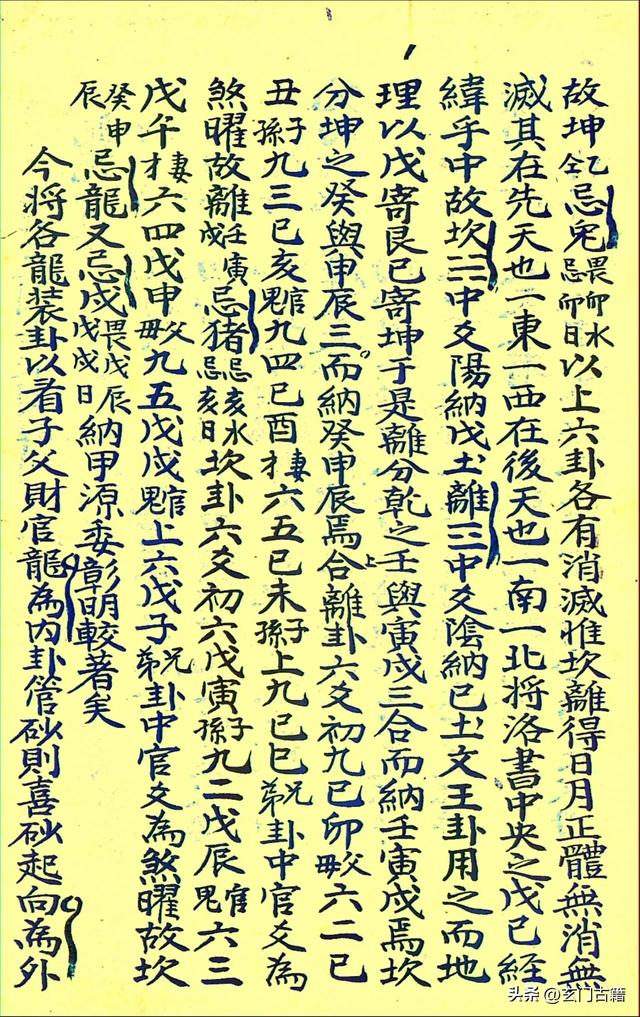 故坤乙仝忌兎畏卯水忌卯日以上六卦各有消滅惟坎離得日月正體無消無
滅其在先天也一東一西在後天也一南一北將洛書中央之戊己經
緯乎中故坎☵中爻陽納戊土離☲中爻陰納己土文王卦用之而地
理以戊寄艮己寄坤于是離分乾之壬與寅戌三合而納壬寅戌焉坎
分坤之癸與申辰三而納癸申辰焉合上離卦六爻初九己卯父母六二己
丑子孫九三己亥官鬼九四己酉妻才六五己未子孫上九己巳兄弟卦中官爻為
煞曜故離壬寅戌忌猪忌亥水忌亥日坎卦六爻初六戊寅子孫九二戊辰官鬼六三
戊午妻才六四戊申父母九五戊戌官鬼上六戊子兄弟卦中官爻為煞曜故坎
癸申辰忌龍又忌戌畏戊辰戊戌日納甲源委彰明較著矣
今將各龍装卦以看子父財官龍為内卦管砂則喜砂起向為外
头条 @玄门古籍